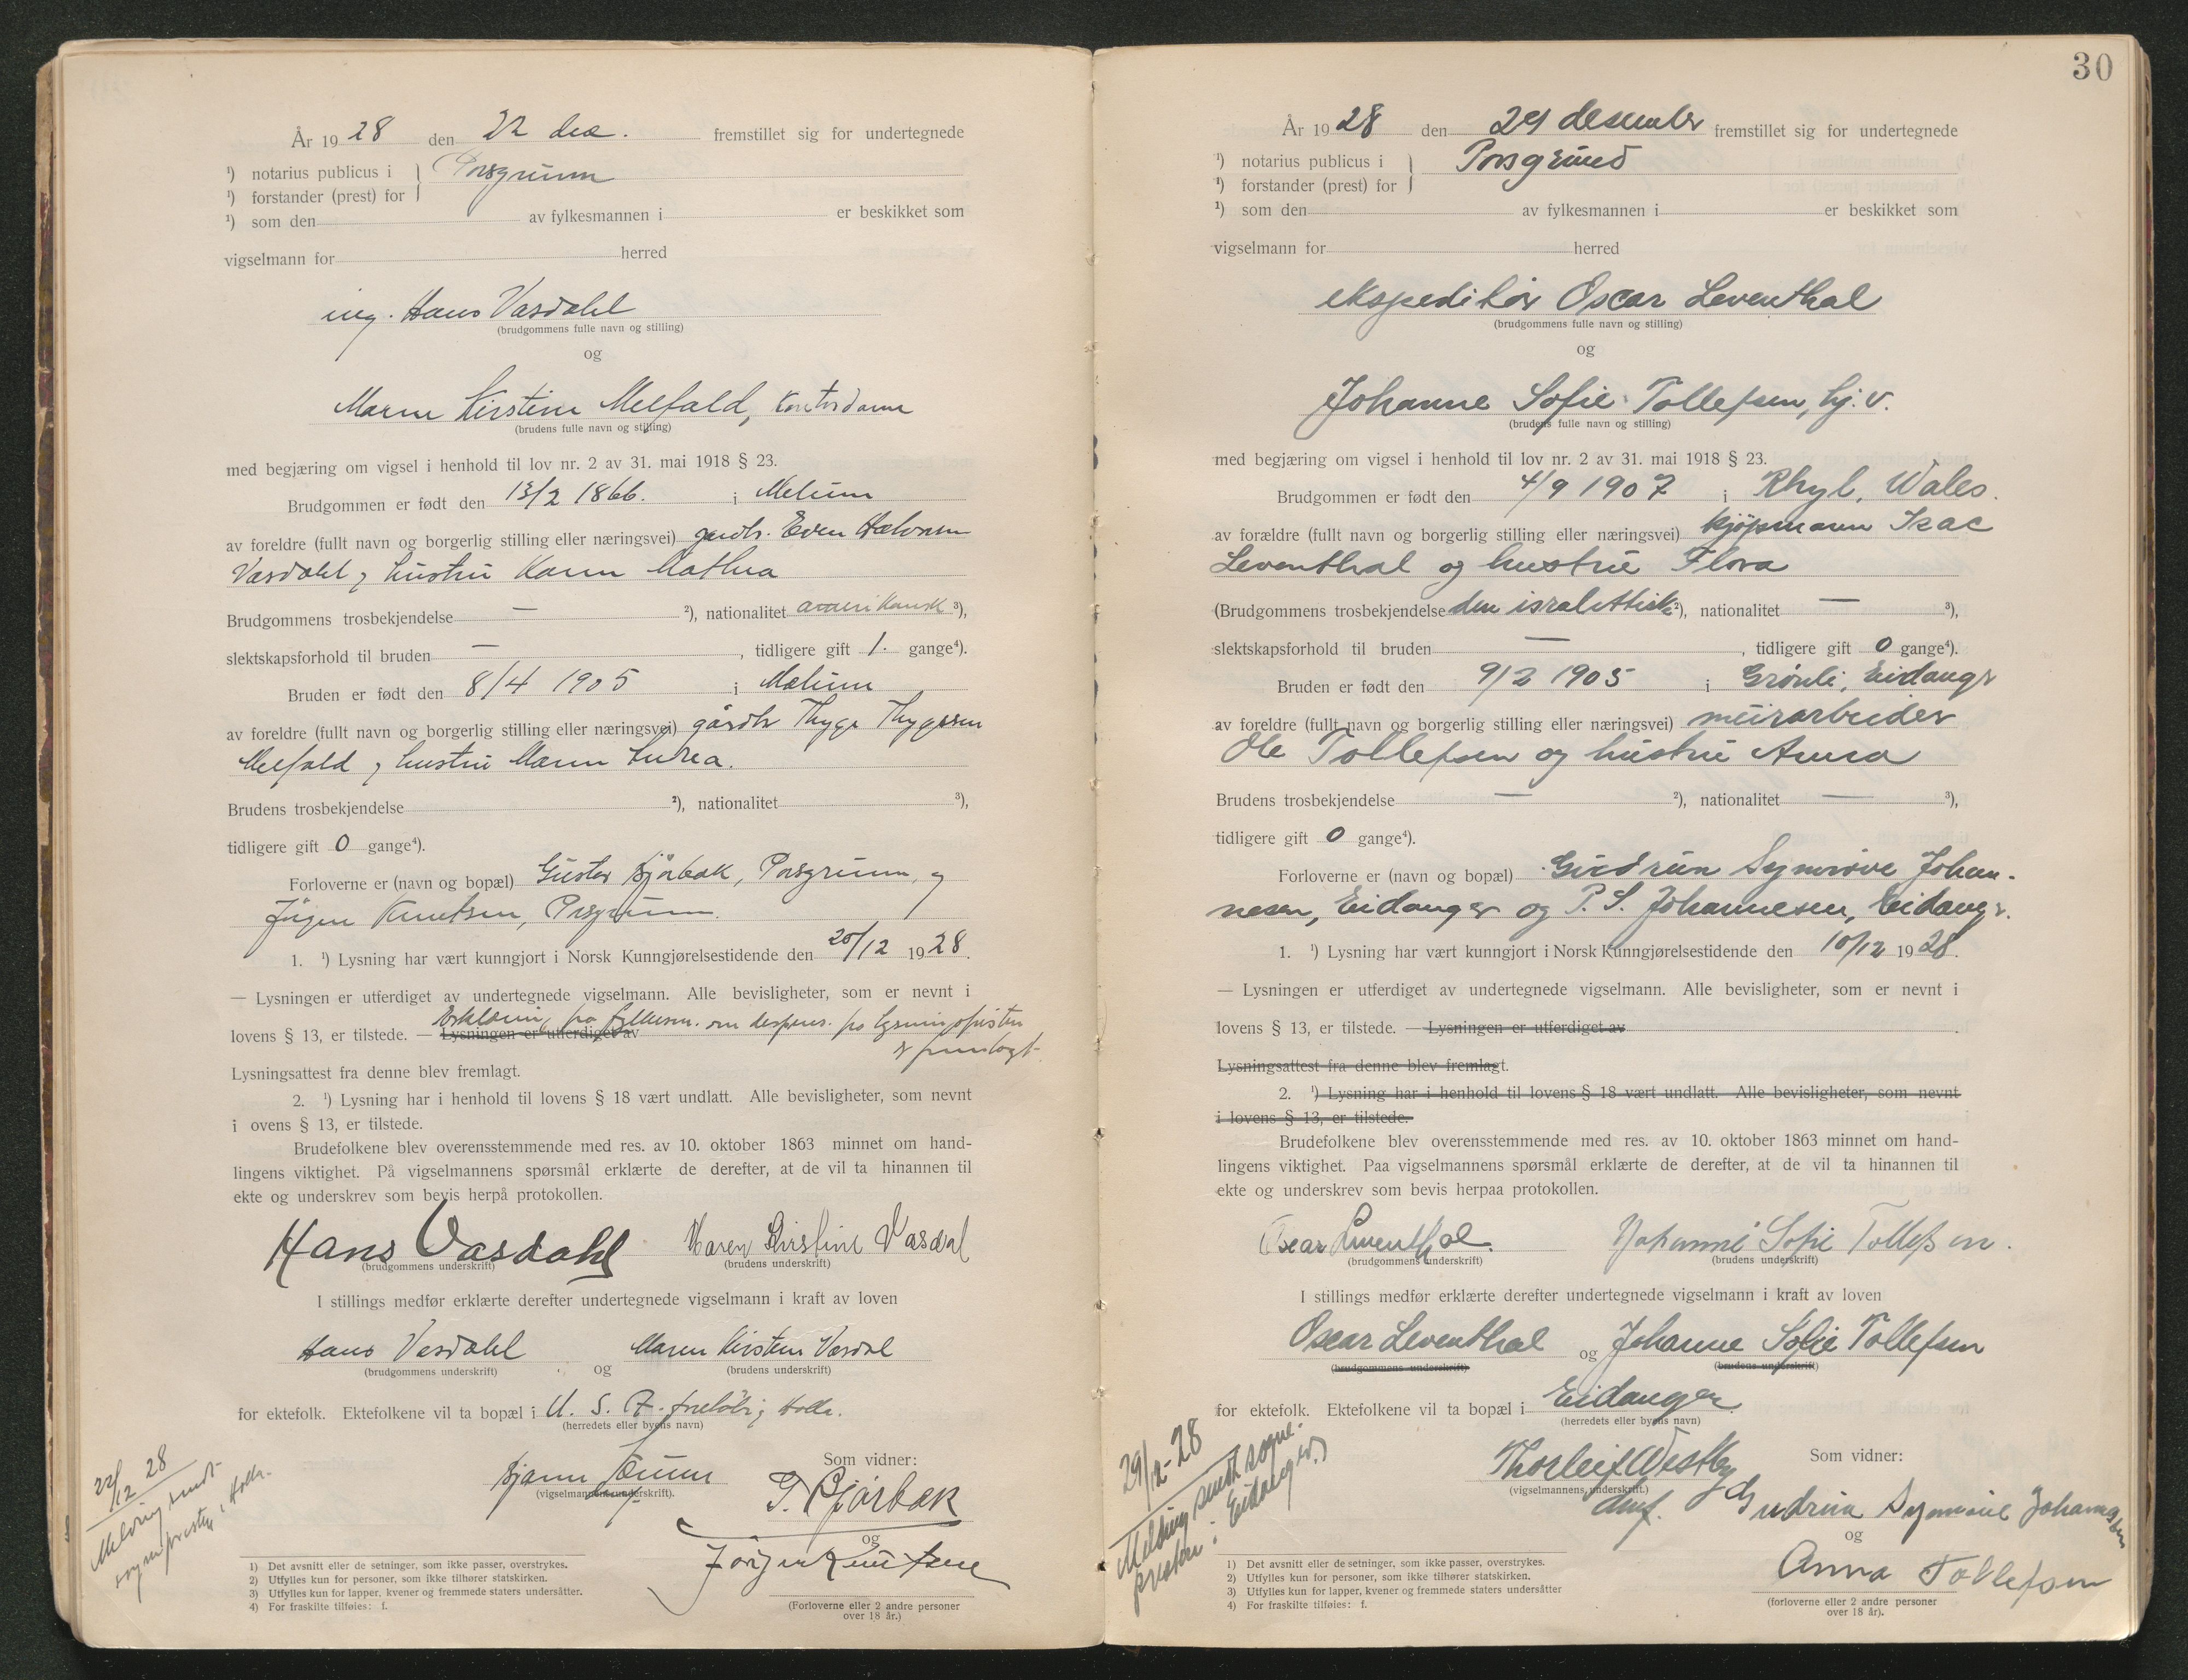 År 19 28 den 22 des. fremstillet sig for undertegnede
¹) notarius publicus i } Porsgrunn
¹) forstander (prest) for
¹) som den av fylkesmannen i er beskikket som
vigselmann for herred
ing. Hans Vasdahl
(brudgommens fulle navn og stilling)
og
Maren Kirstine Melfald, kontordame
(brudens fulle navn og stilling)
med begjæring om vigsel i henhold til lov nr. 2 av 31. mai 1918 § 23.
Brudgommen er født den 13/2 1866. i Melum
av foreldre (fullt navn og borgerlig stilling eller næringsvei) gardbr. Even Halvorsen
Vasdahl og hustru Karen Mathea
Brudgommens trosbekjendelse — ²), nationalitet amerikansk ³),
slektskapsforhold til bruden — , tidligere gift 1. gange⁴).
Bruden er født den 8/4 1905 i Melum
av foreldre (fullt navn og borgerlig stilling eller næringsvei) gårdbr Thyge Thygesen
Melfald og hustru Maren Andrea.
Brudens trosbekjendelse ²), nationalitet ³),
tidligere gift 0 gange⁴).
Forloverne er (navn og bopæl) Gustav Bjørbæk, Porsgrunn, og
Jørgen Knutsen, Porsgrunn.
1. ¹) Lysning har vært kunngjort i Norsk Kunngjørelsestidende den 20/12 1928.
— Lysningen er utferdiget av undertegnede vigselmann. Alle bevisligheter, som er nevnt i
Erklæring fra fylkesm. om dispens. fra lysningsfristen
lovens § 13, er tilstede. — Lysningen er utferdiget av
er fremlagt
Lysningsattest fra denne blev fremlagt.
2. ¹) Lysning har i henhold til lovens § 18 vært undlatt. Alle bevisligheter, som nevnt
i ovens § 13, er tilstede.
Brudefolkene blev overensstemmende med res. av 10. oktober 1863 minnet om hand-
lingens viktighet. På vigselmannens spørsmål erklærte de derefter, at de vil ta hinannen til
ekte og underskrev som bevis herpå protokollen.
Hans Vasdahl Maren Kirstine Vasdal
(brudgommens underskrift) (brudens underskrift)
I stillings medfør erklærte derefter undertegnede vigselmann i kraft av loven
Hans Vasdahl og Maren Kirstine Vasdal
(brudgommens underskrift) (brudens underskrift)
for ektefolk. Ektefolkene vil ta bopæl i U. S. A. foreløbig Holla.
(herredets eller byens navn)
Som vidner:
Bjarne
(vigselmannens underskrift).
G. Bjørbæk
og
Jørgen Knutsen
(Forloverne eller 2 andre personer
over 18 år.)
22/12 28
Melding sendt
sognepresten i Holla.
1) Det avsnitt eller de setninger, som ikke passer, overstrykes.
2) Utfylles kun for personer, som ikke tilhører statskirken.
3) Utfylles kun for lapper, kvener og fremmede staters undersåtter.
4) For fraskilte tilføies: f.
30
År 19 28 den 29 desember fremstillet sig for undertegnede
¹) notarius publicus i } Porsgrund
¹) forstander (prest) for
¹) som den av fylkesmannen i er beskikket som
vigselmann for herred
ekspeditør Oscar Leventhal
(brudgommens fulle navn og stilling)
og
Johanne Sofie Tollefsen, hj. v.
(brudens fulle navn og stilling)
med begjæring om vigsel i henhold til lov nr. 2 av 31. mai 1918 § 23.
Brudgommen er født den 4/9 1907 i Rhyl, Wales.
av forældre (fullt navn og borgerlig stilling eller næringsvei) kjøpmann Isac
Leventhal og hustru Flora
(Brudgommens trosbekjendelse den israelittiske ²), nationalitet — ³),
slektskapsforhold til bruden — , tidligere gift 0 gange⁴).
Bruden er født den 9/2 1905 i Grønli, Eidanger
av foreldre (fullt navn og borgerlig stilling eller næringsvei) murarbeider
Ole Tollefsen og hustru Anna
Brudens trosbekjendelse — ²), nationalitet — ³),
tidligere gift 0 gange⁴).
Forloverne er (navn og bopæl) Gudrun Synnøve Johan-
nesen, Eidanger og P. S. Johannesen, Eidanger.
1. ¹) Lysning har vært kunngjort i Norsk Kunngjørelsestidende den 10/12 1928.
— Lysningen er utferdiget av undertegnede vigselmann. Alle bevisligheter, som er nevnt i
lovens § 13, er tilstede. — Lysningen er utferdiget av .
Lysningsattest fra denne blev fremlagt.
2. ¹) Lysning har i henhold til lovens § 18 vært undlatt. Alle bevisligheter, som nevnt
i lovens § 13, er tilstede.
Brudefolkene blev overensstemmende med res. av 10. oktober 1863 minnet om hand-
lingens viktighet. Paa vigselmannens spørsmål erklærte de derefter, at de vil ta hinannen til
ekte og underskrev som bevis herpaa protokollen.
Oscar Leventhal. Johanne Sofie Tollefsen.
(brudgommens underskrift) (brudens underskrift)
I stillings medfør erklærte derefter undertegnede vigselmann i kraft av loven
Oscar Leventhal og Johanne Sofie Tollefsen
(brudgommens underskrift) (brudens underskrift)
for ektefolk. Ektefolkene vil ta bopæl i Eidanger
(herredets eller byens navn)
Som vidner:
Thorleif Westby
(vigselmannens underskrift.)
Gudrun Synnøve Johannesen
og
Anna Tollefsen
(forloverne eller 2 andre personer
over 18 år).
29/12-28
Melding sendt sogne-
presten i Eidanger
1) Det avsnitt eller de setninger, som ikke passer, overstrykes.
2) Utfylles kun for personer, som ikke tilhører statskirken.
3) Utfylles kun for lapper, kvener og fremmede staters undersåtter
4) For fraskilte tilføies: f.